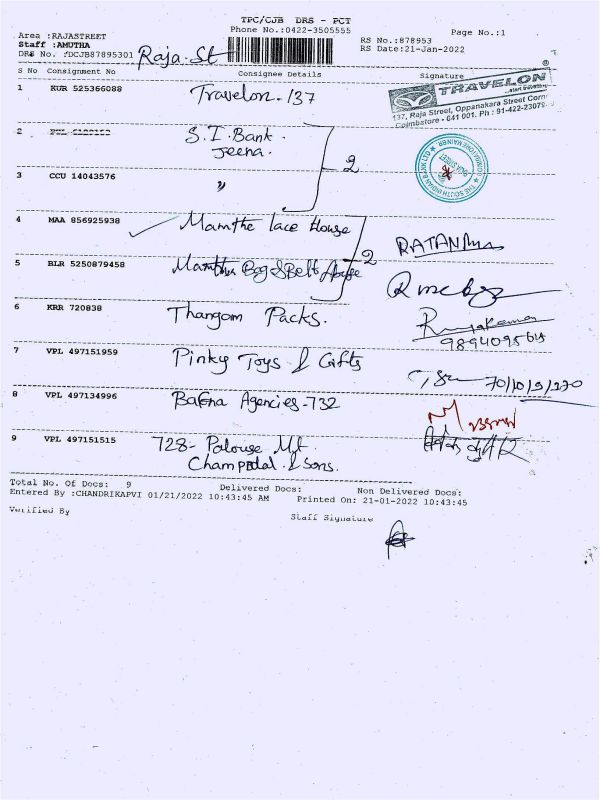 TPC/CJB DRS - PCT
Area :RAJASTREET
Phone No.:0422-3505555
Page No.:1
Staff :AMUTHA
RS No.:878953
DRS No. /DCJB87895301
Raja. St
RS Date:21-Jan-2022
S No Consignment No Consignee Details Signature
1 KUR 525366088 Travelon. 137
TRAVELON
137, Raja Street, Oppanakara Street Corn
Coimbatore - 641 001. Ph : 91-422-2307
2 S.I. Bank.
Jeena.
2
THE SOUTH INDIAN BANK LTD
3 CCU 14043576 "
4 MAA 856925938 Mamthe lace House
2
RATAN
5 BLR 5250879458 Bag & Belt
6 KRR 720838 Thangam Packs.
9894095
7 VPL 497151959 Pinky Toys & Gifts
8 VPL 497134996 Bafna Agencies-732
9 VPL 497151515 728- Palouse
& Sons.
Total No. Of Docs: 9 Delivered Docs: Non Delivered Docs:
Entered By :CHANDRIKAPVI 01/21/2022 10:43:45 AM Printed On: 21-01-2022 10:43:45
Verified By
Staff Signature